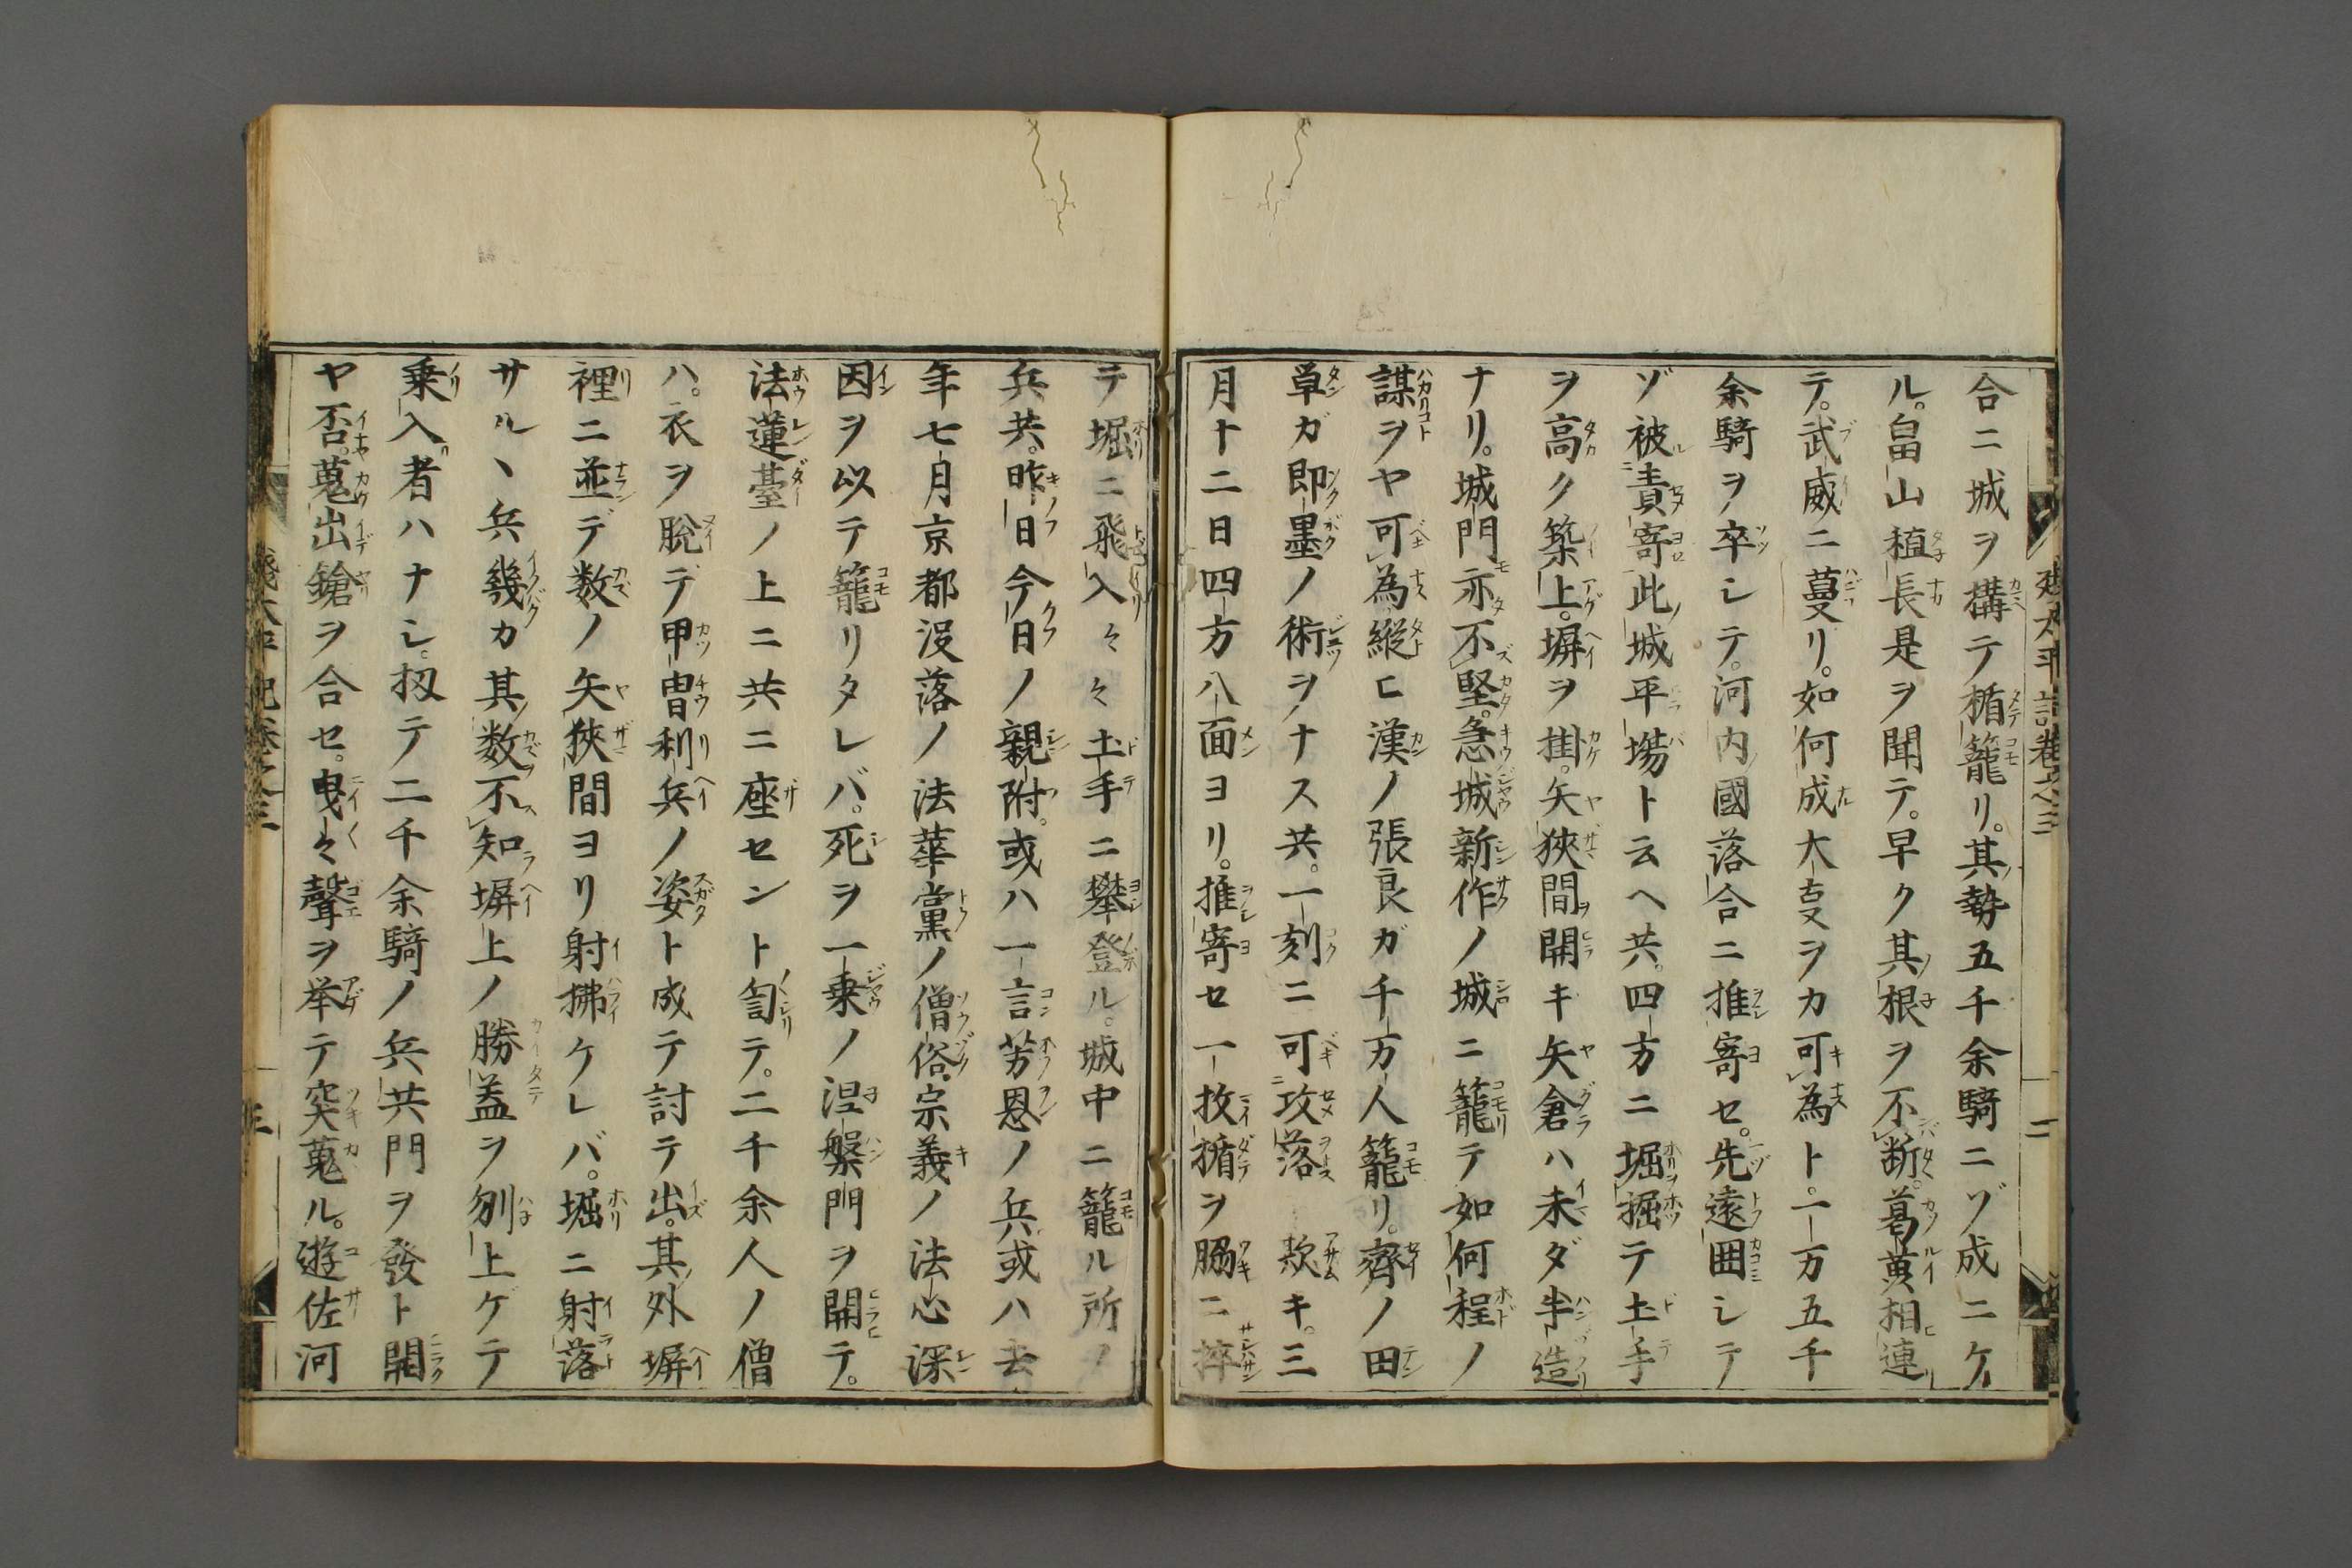 合ニ城ヲ構テ楯籠リ。其勢五千余騎ニゾ成ニケ
ル。畠山植長是ヲ聞テ。早ク其根ヲ不断。葛藟相連
テ。武威ニ蔓リ。如何成大事ヲカ可為ト。一万五千
余騎ヲ卒シテ。河内國落合ニ推寄セ。先遠囲シテ
ゾ被責寄此城平場ト云ヘ共。四方ニ堀掘テ土手
ヲ高ク築上。塀ヲ掛。矢狹間開キ矢倉ハ未ダ半造
ナリ。城門亦不堅。急城新作ノ城ニ籠テ如何程ノ
謀ヲヤ可為縦ヒ漢ノ張良ガ千万人籠リ。齊ノ田
單ガ即墨ノ術ヲナス共。一刻ニ可攻落欺キ。三
月十二日四方八面ヨリ。推寄セ一枚楯ヲ脇ニ挾
テ堀ニ飛入々々土手ニ攀登ル。城中ニ籠ル所ノ
兵共。昨日今日ノ親附。或ハ一言芳恩ノ兵或ハ去
年七月京都没落ノ法華黨ノ僧俗宗義ノ法心深
因ヲ以テ籠リタレバ。死ヲ一乗ノ涅槃門ヲ開テ。
法蓮臺ノ上ニ共ニ座セント訇テ。二千余人ノ僧
ハ。衣ヲ脱デ甲冑利兵ノ姿ト成テ討テ出。其外塀
裡ニ並デ数ノ矢狹間ヨリ射拂ケレバ。堀ニ射落
サル丶兵幾カ其数不知塀上ノ勝盖ヲ刎上ゲテ
乗入者ハナシ。扨テ二千余騎ノ兵共門ヲ發ト開
ヤ否。蒐出鎗ヲ合セ。曳々聲ヲ举テ突蒐ル。遊佐河